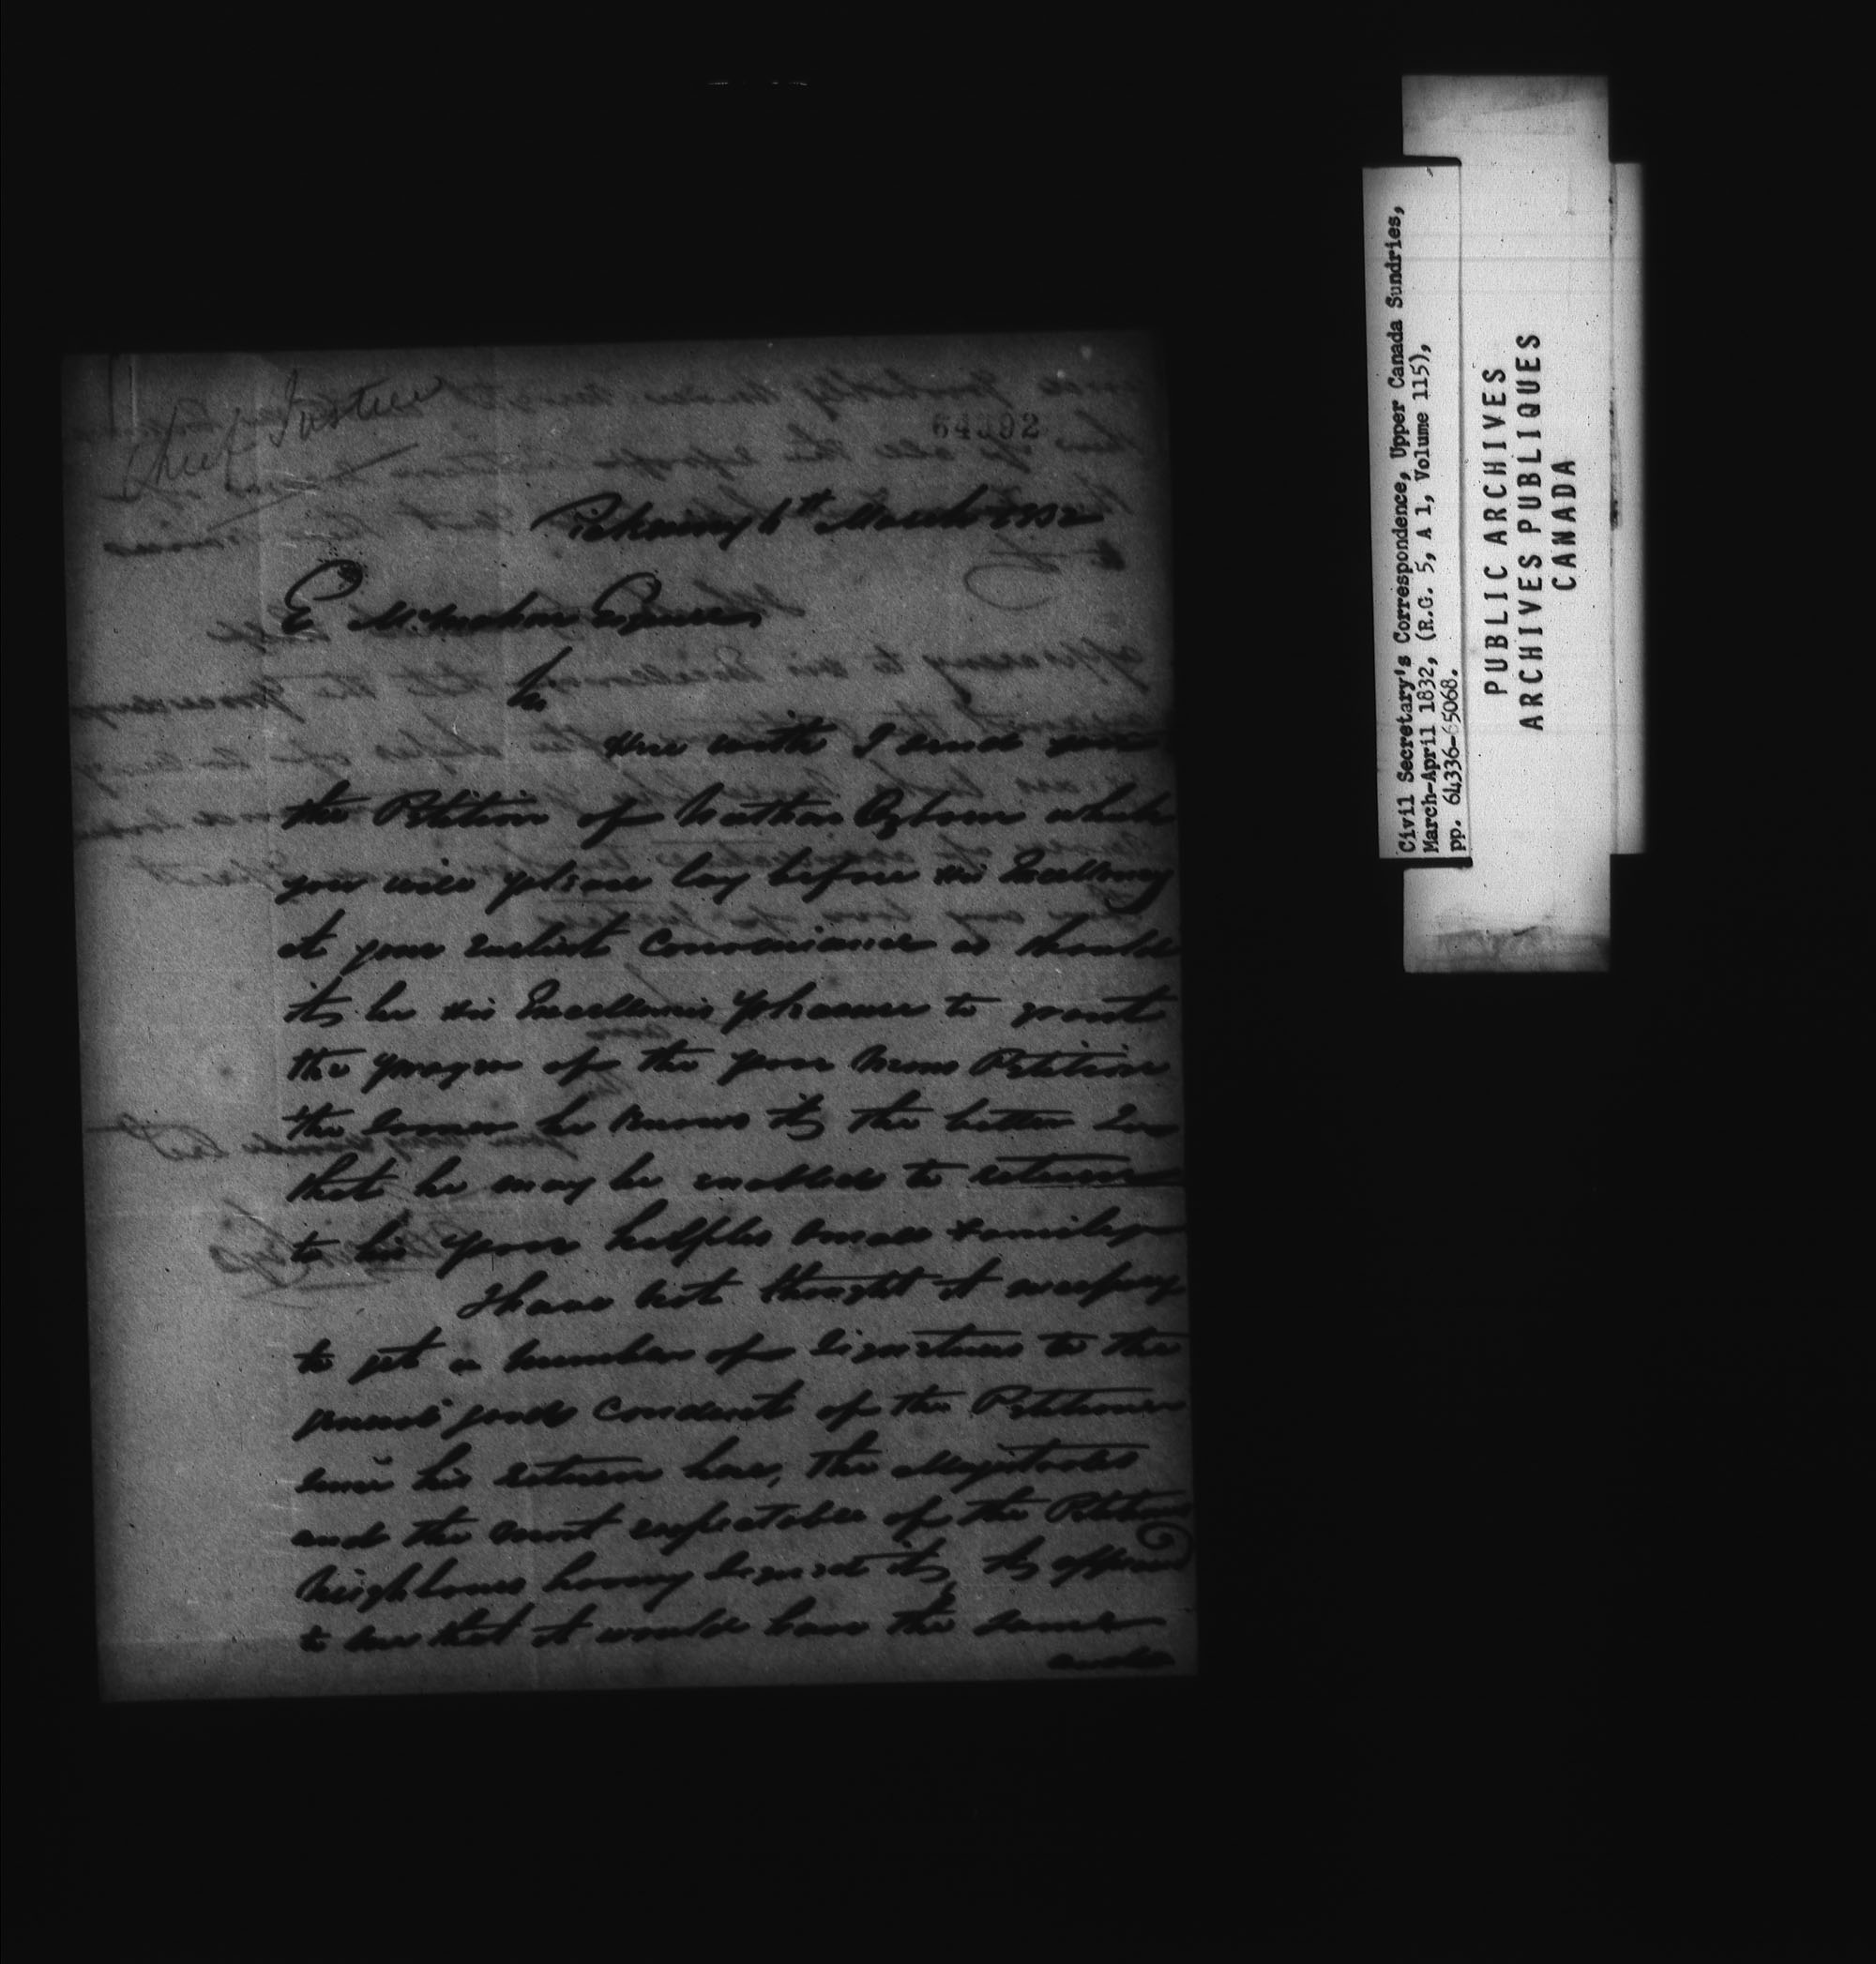 Chief Justice
64392
Pickering 6th March 1832
E McMahon Esquire
Sir
Here with I send you
the Petition of Nathan Ogborn which
you will please lay before His Excellency
at your earliest Conveniance as should
it be His Excellencies pleasure to grant
the prayer of the poor mans Petition
the sooner he knows it the better Sir
that he may be enabled to return
to his poor helpless small family
I have not thought it necessary
to get a number of Signatures to the
general good Conduct of the Petitioner
since his return here, The Magistrates
and the most respectable of the Petitioners
Neighbours having signed it, it appears
to me that it would have the same
and
Civil Secretary's Correspondence, Upper Canada Sundries,
March-April 1832, (R.G. 5, A 1, Volume 115),
pp. 64336-65068.
PUBLIC ARCHIVES
ARCHIVES PUBLIQUES
CANADA